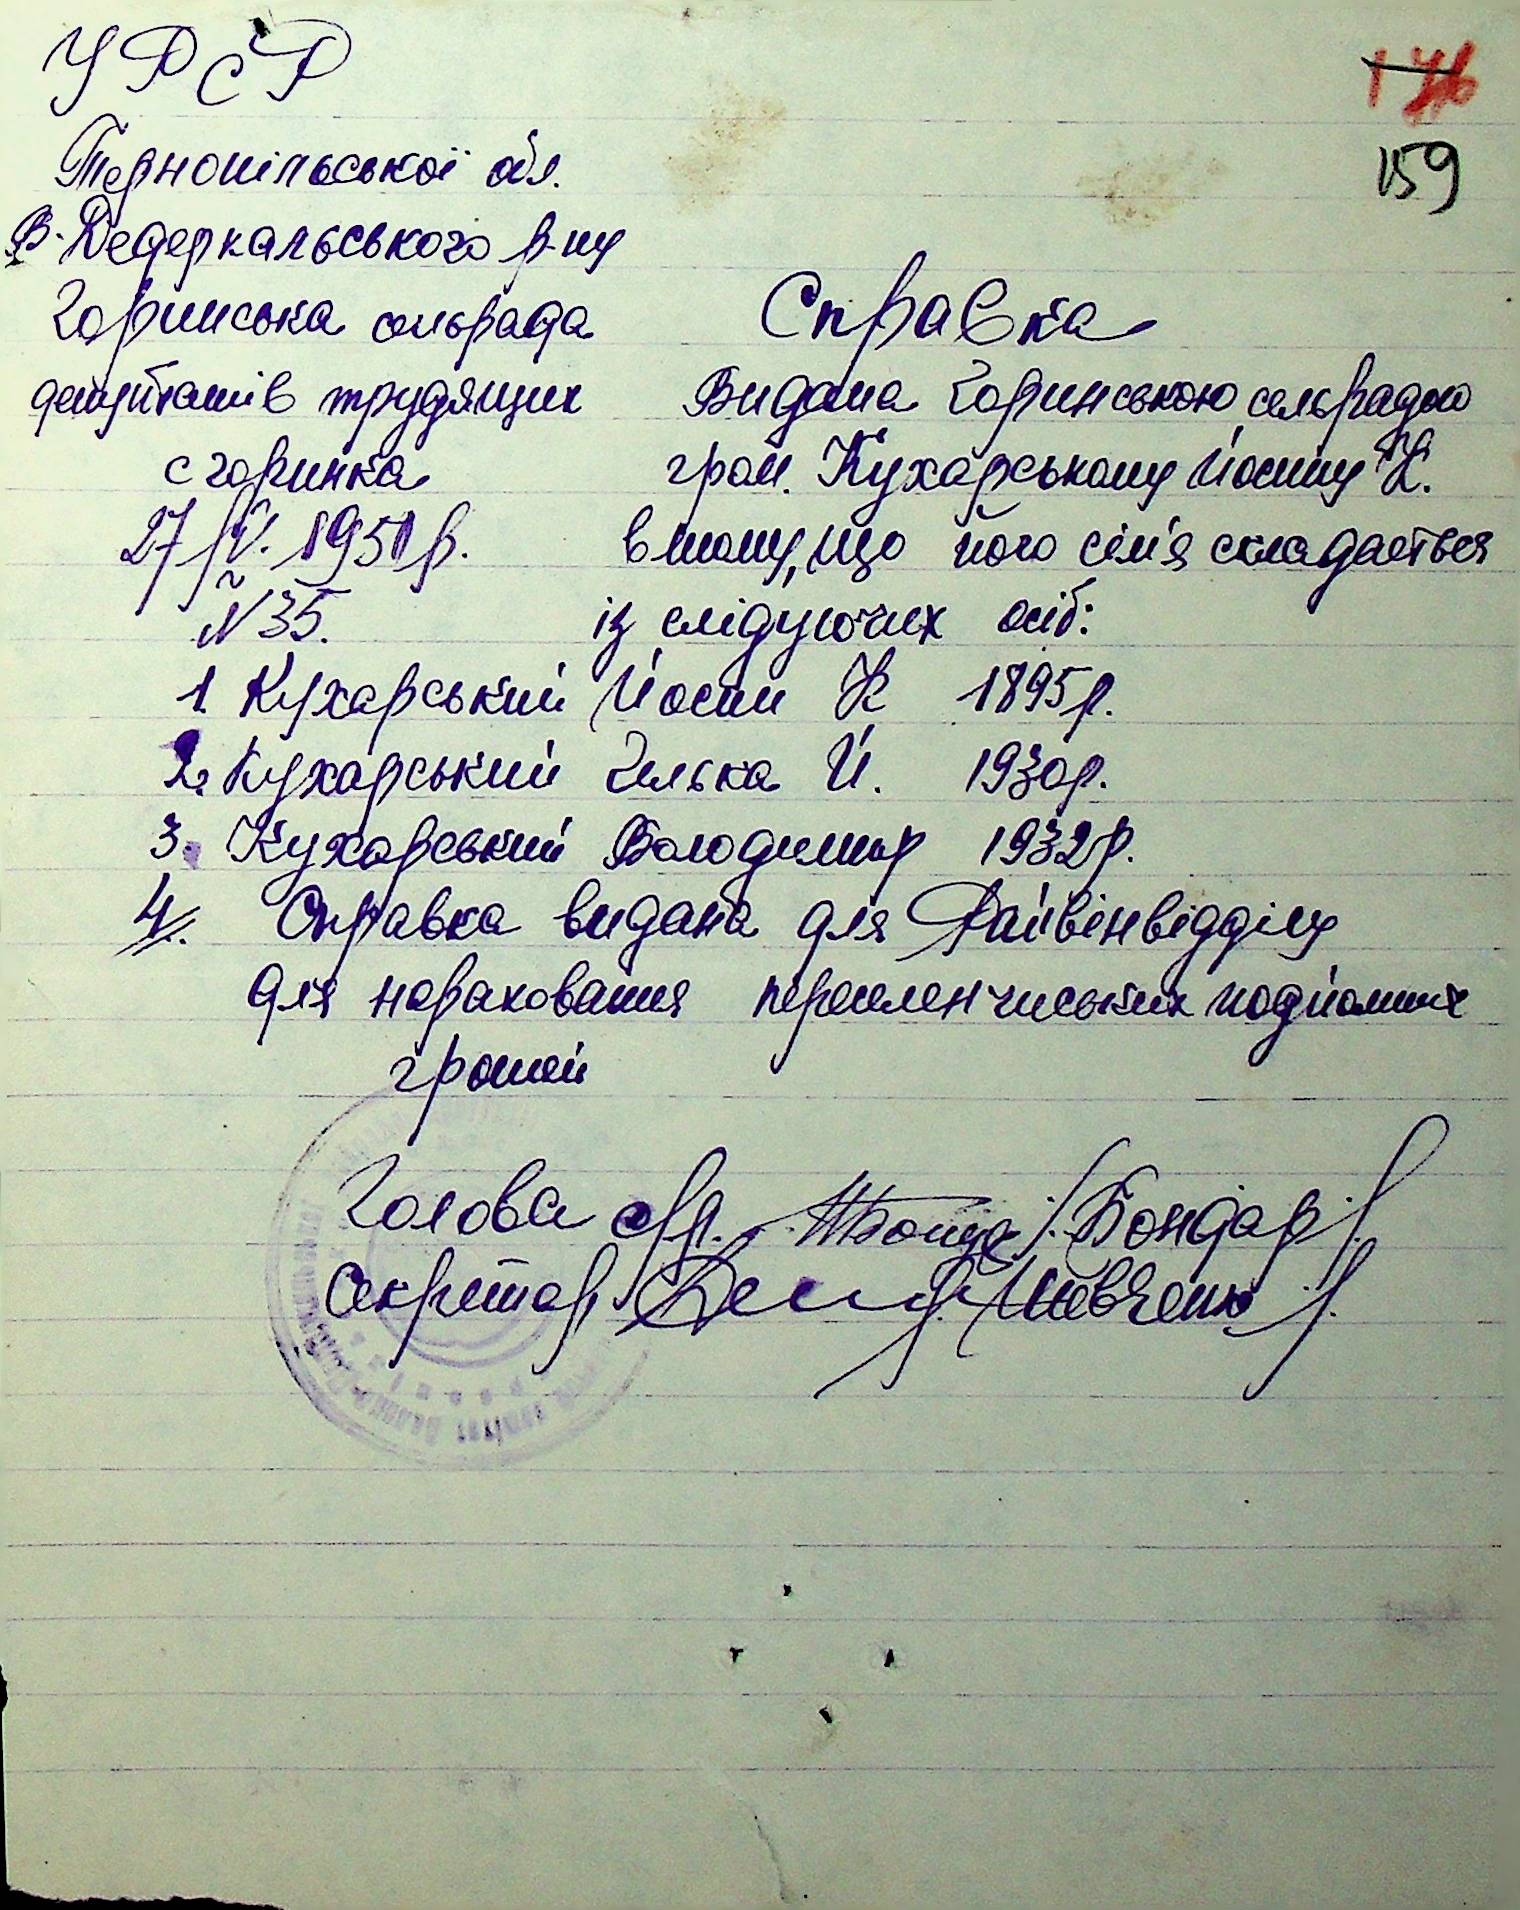 УРСР
176
159
Тернопільської обл.
В. Дедеркальського р-ну
Горинська сельрада
депутатів трудящих
с Горинка
27/IV. 1951 р.
№ 35.
Справка
Видана Горинською сельрадою
гром. Кухарському Йосипу К.
в тому, що його сім'я складається
із слідуючих осіб:
1. Кухарський Йосип К 1895р.
2. Кухарський Гилька Й. 1930р.
3. Кухарський Володимир 1932р.
4. Справка видана для Райвінвідділу
для нараховання переселенчиських подйомних
грошей
Голова с/р. /Бондар/.
Секретар /Шевченко/.